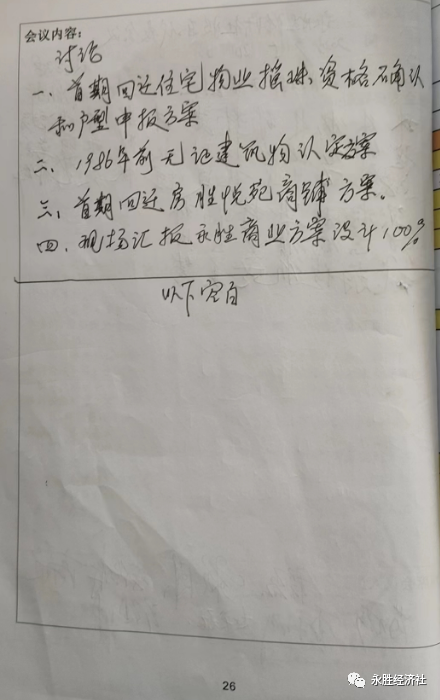 会议内容:
讨论
一、首期回迁住宅物业摇珠、资格确认
和户型申报方案
二、1986年前无证建筑物认定方案
三、首期回迁房胜悦苑商铺方案。
四、现场汇报永胜商业方案设计100%
以下空白
26
永胜经济社